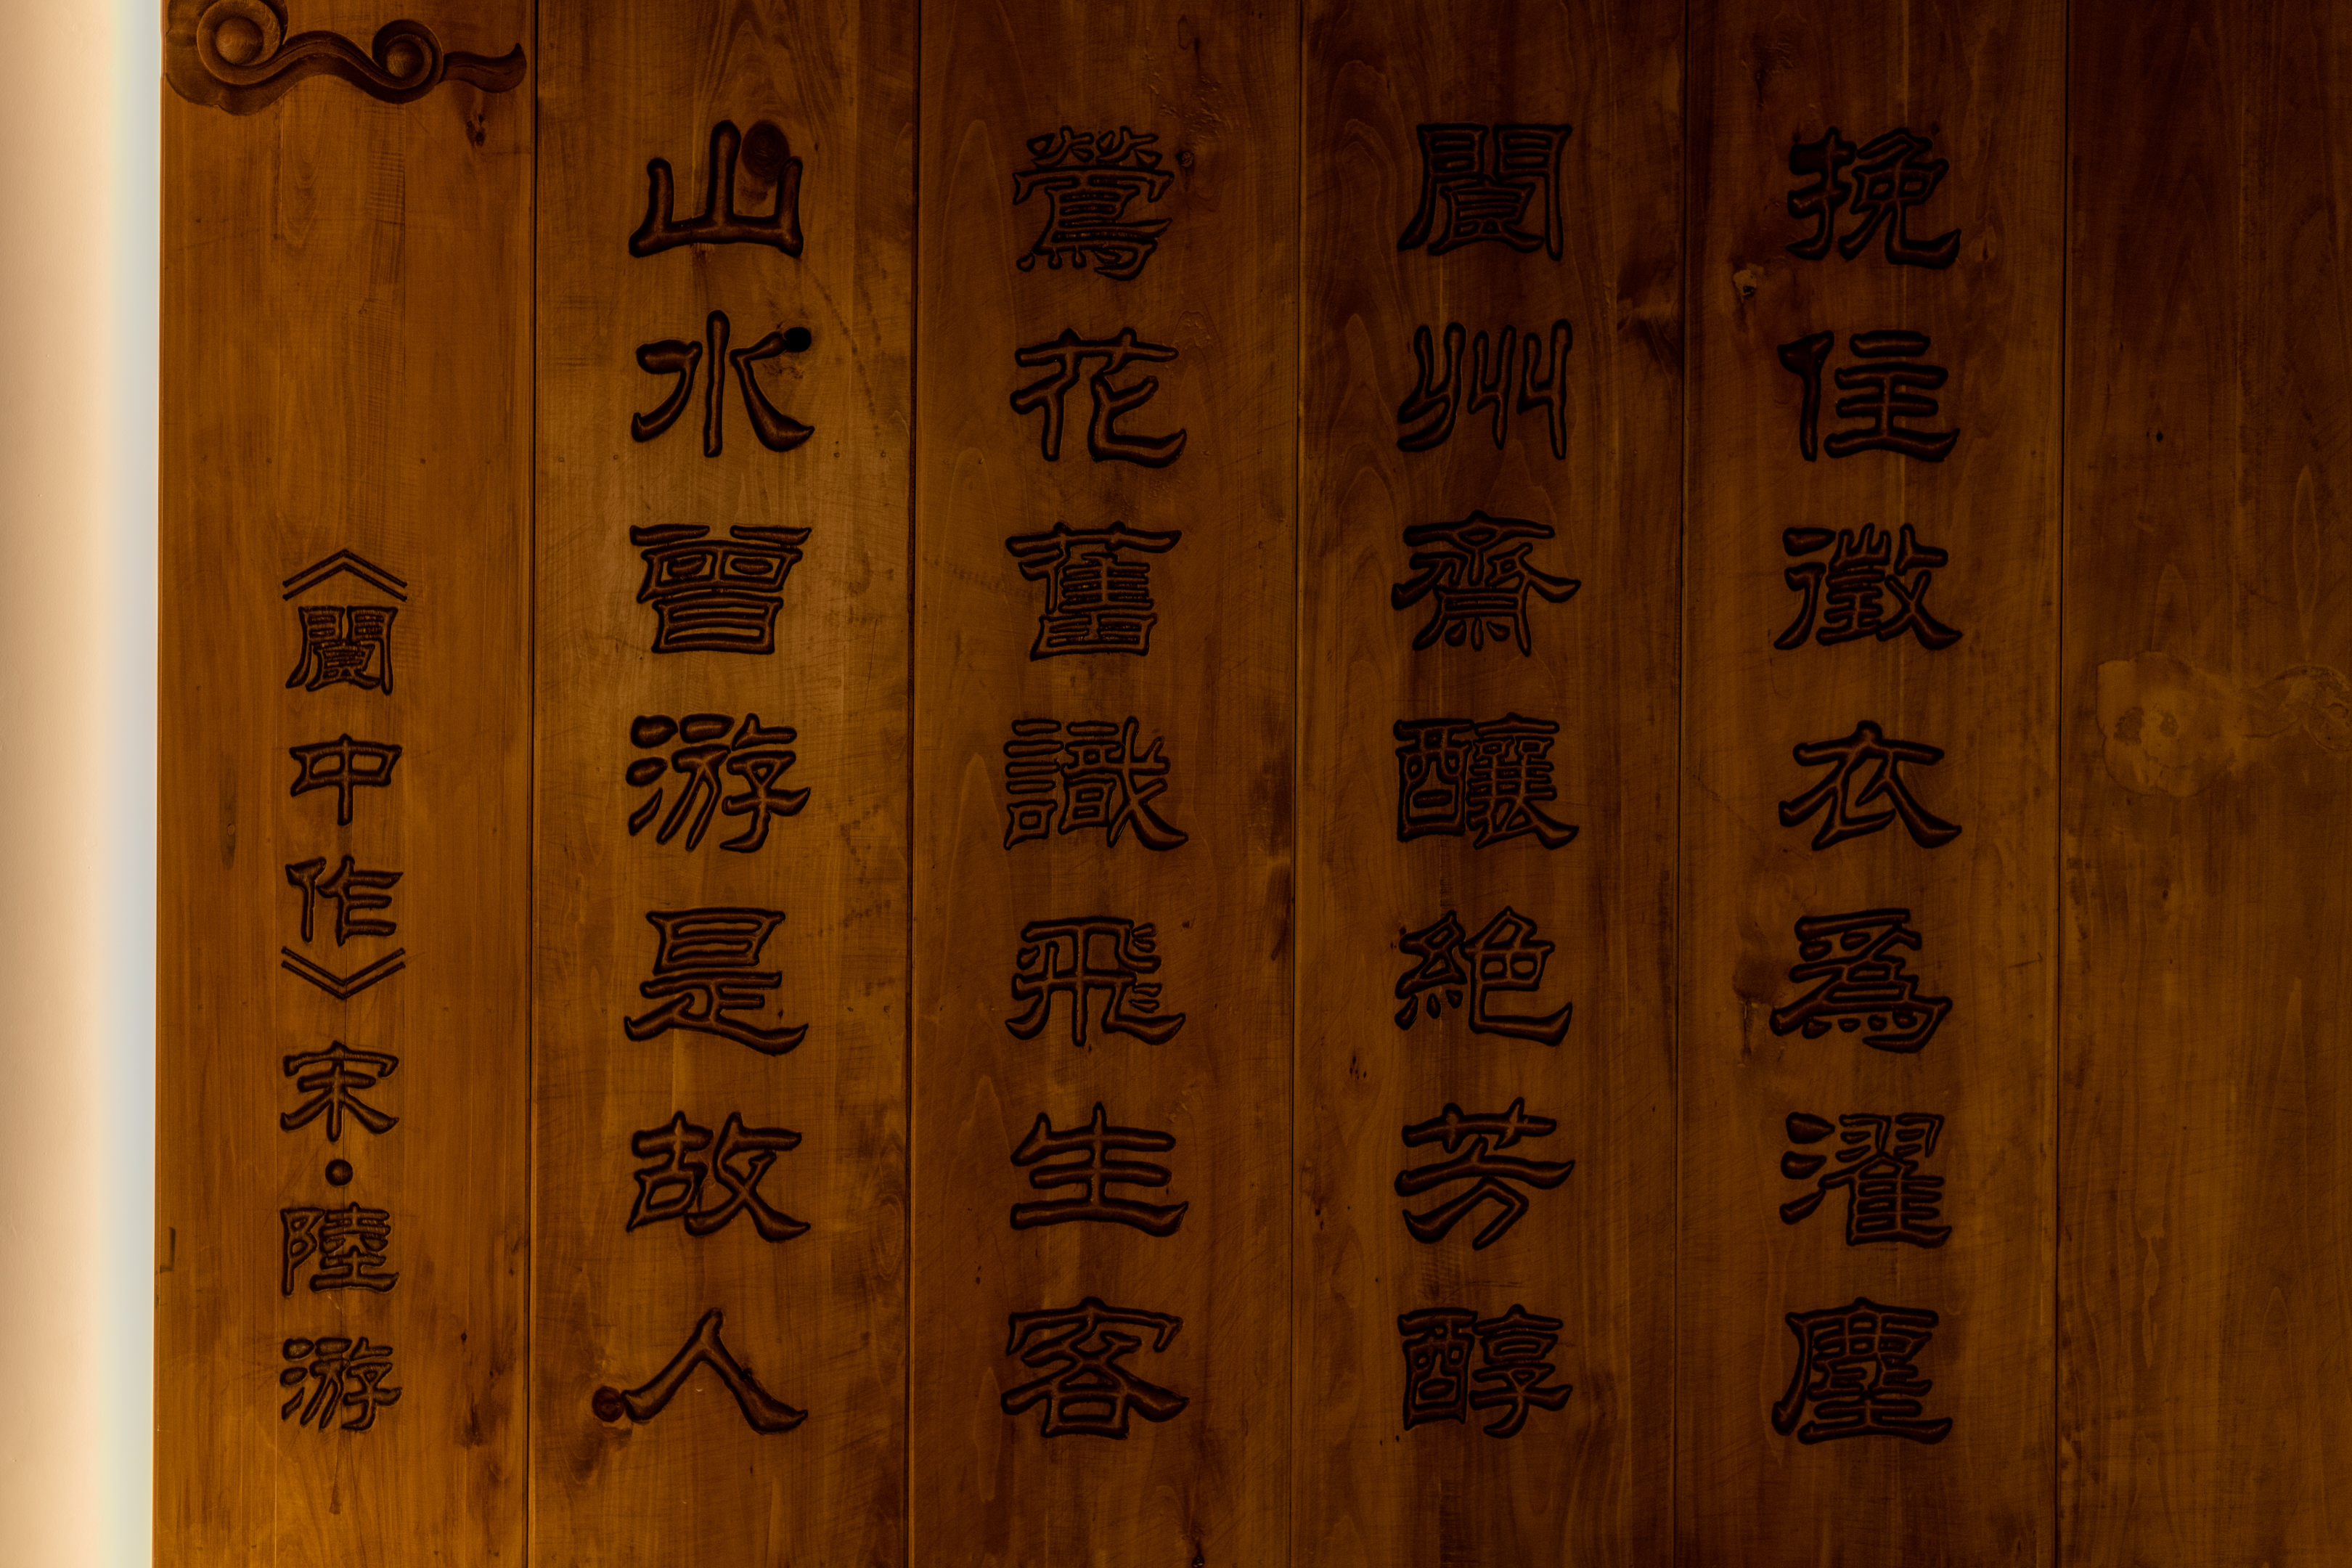 挽住徵衣爲濯塵
閬州齋釀絕芳醇
鶯花舊識飛生客
山水曾游是故人
《閬中作》宋·陸游